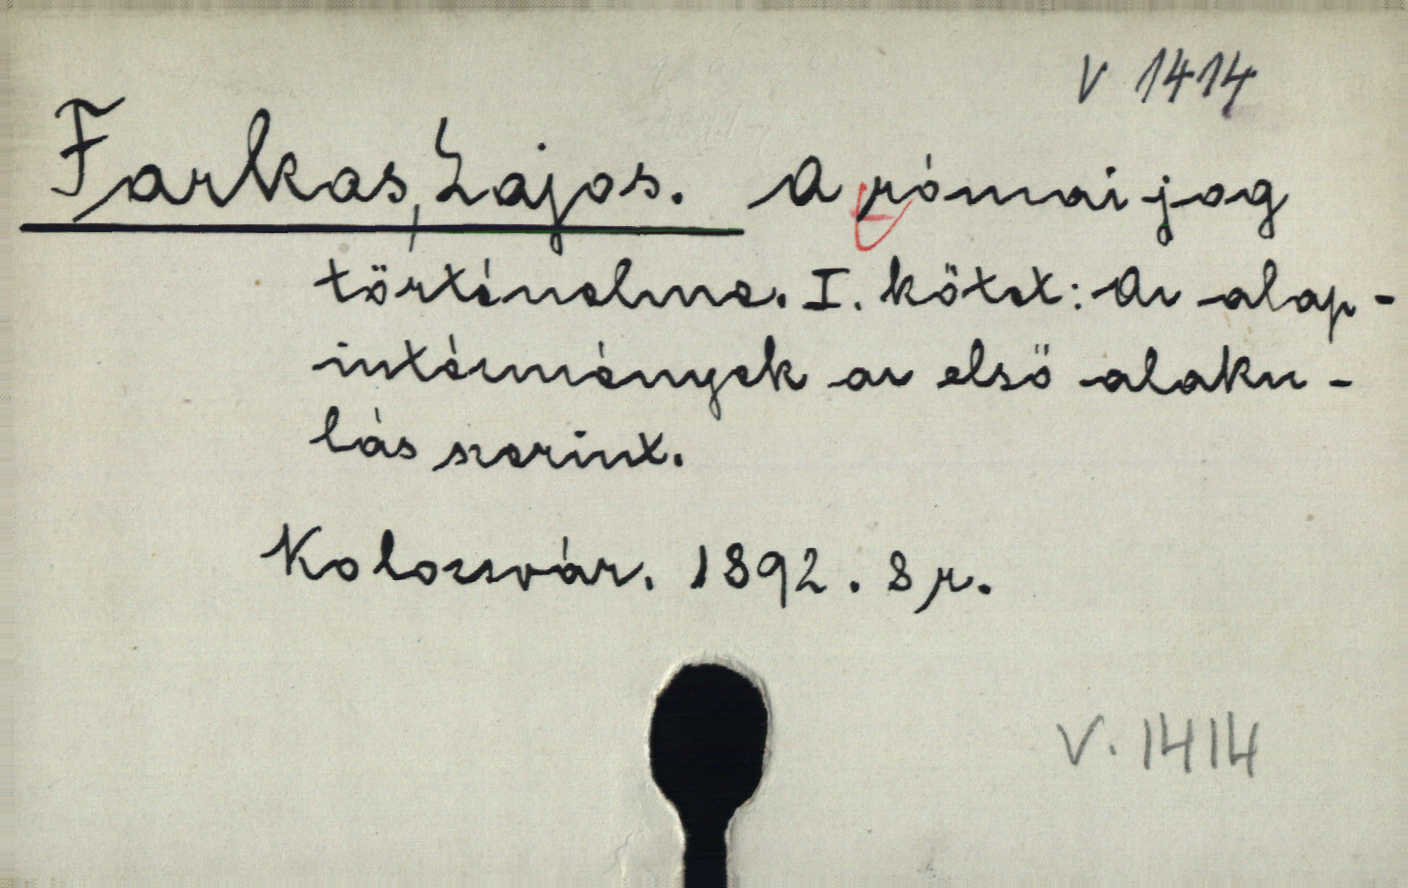 V 1414
Farkas, Lajos. A római jog
történelme. I. kötet: Az alap-
intézmények az első alaku-
lás szerint.
Kolozsvár. 1892. 8r.
V. 1414